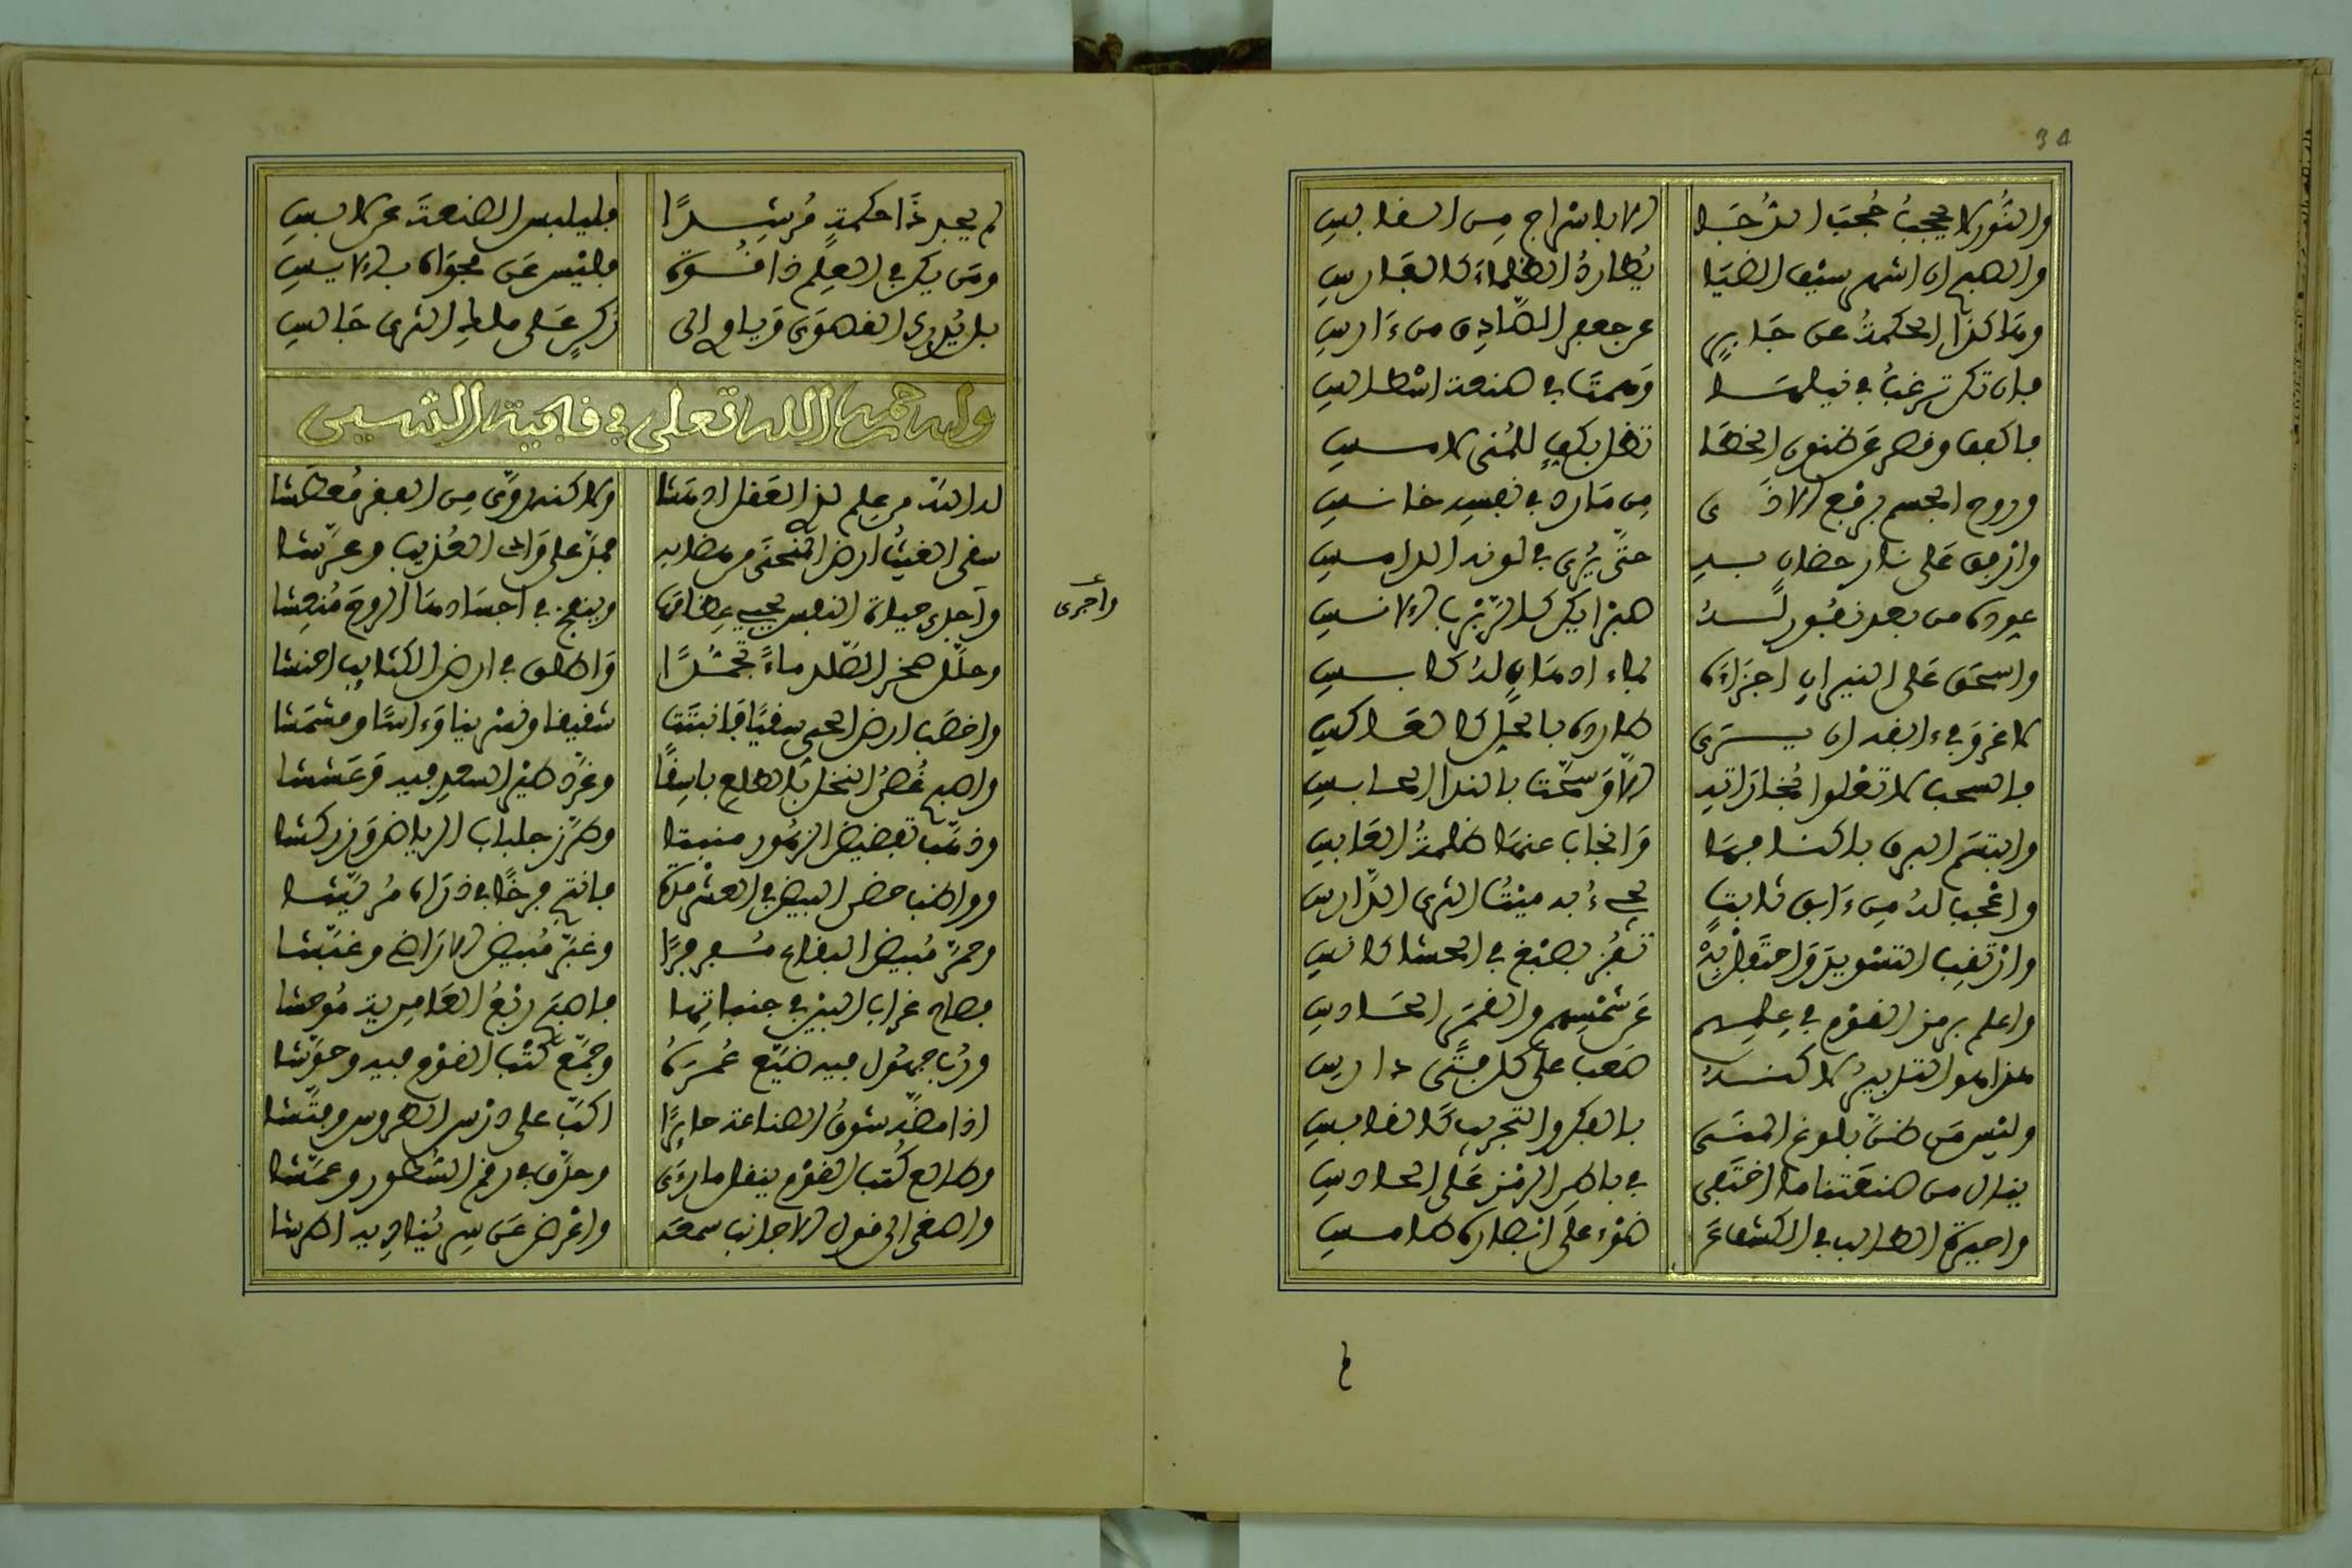 34
والنور لا يحجب حجب الدجا إلا بإسراج من القابس
والصبح إن أشهر سيف الضيا يطارد الظلماء كالفارس
وما كذا الحكمة عن جابر عن جعفر الصادق من دارس
فإن تكن ترغب في نيلها وهمت في صنعة اشطالس
فاكفف وقصر عن ظنون الخطا تظل بكف للمنى لامس
وروح الجسم برفع الأذى من ماره في نفسه خانس
وارفق على نار حضان به حتى يرى في لونه الدامس
عروه من بعد نفور له هذا يكن كالزبرب الآنس
واسحق على النيران اجزاءه بماء ادهان له كابس
لا غرو في الفرار يسرى طاروه بالحل كالعاكس
فالسحب لا تعلوا بخاراته إلا وسحت بالندا الحابس
وابتسم البرق باكنافها وانجاب عنها ظلمة العابس
واعجب له من آبق ثابت يحيى به ميت الثرى الدارس
وارتقب التسويد واحتفل به تفز بصبغ في الحشا كانس
واعلم برمز القوم في علمهم عن شمسهم والقمر الحادس
هذا هو التدبير لاكنه صعب على كل فتى دارس
وليس من ظن بلوغ المنى بالفكر والتجريب كالقابس
ينال من صنعتنا ما اختفى في باطن الرمز على الحادس
واحيرة الطالب في الكشف عن ضوء على انظاره طامس
لم يجد ذا حكمة مرشدا فليلبس الصنعة عن لابس
ومن يكن في العلم ذا قسوة فليس عن فحواه بالآيس
ولله رحمه الله تعالى في قافية الشين
لله الله من علم لذي العقل ادهشا ولا كنه روى من الفقر معطشا
سقى الغيث ارض المنحنى من رضابه فجد على وادي العذيب وعرشا
واجرى حياة النفس يحيى عظامها وينفخ في اجسادها الروح منعشا
واجرى
وحلل صخر الصلد ماء تجسدا واطلق في ارض الكثايب احنشا
واخصب ارض الحمى سقيا فانبتت شقيقا ونسرينا وءاسا ومشمشا
واصبح غصن النخل بالطلع باسقا وغرد طير السعد فيه وعششا
وذهب تفضيض الزهور منبتا وطرز جلباب الرياض وزركشا
وواظب حضن البيض في العش مدة فانتج فرخا في ذراه مريشا
وحمر مبيض البقاع مسفرا وغبر مبيض الاراضي وغبشا
فصاح غراب البين في جنباتها فاصبح ربع العامرية موحشا
ورب جهول فيه ضيع عمره وجمع كتب القوم فيه وحوشا
اذا مضه شوق الصناعة حايرا اكب على درس الطروس وفتشا
وطالع كتب القوم ينقل ما رءى وحلق في رقم السطور وهمشا
واصغى الى قول الاجانب سمعه واعرض عن سر يناديه اطرشا